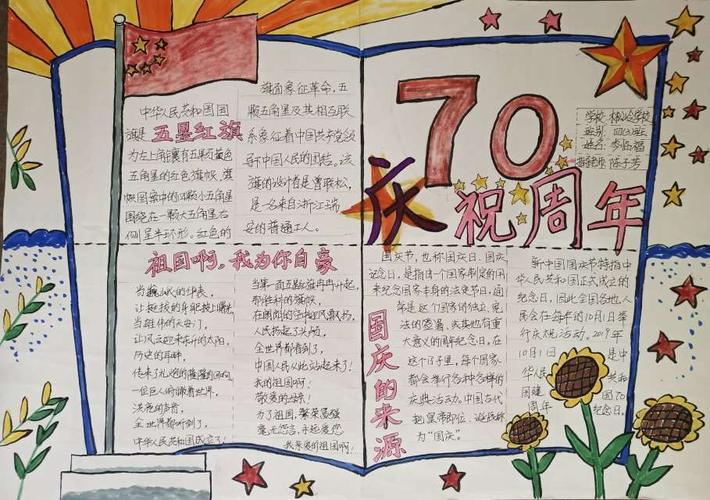 中华人民共和国国
旗是五星红旗
为左上角镶有五颗黄色
五角星的红色旗帜，旗
帜图案中的四颗小五角星
围绕在一颗大五角星右
侧呈半环形。红色的
旗面象征革命，五
颗五角星及其相互联
系象征着中国共产党领
导下中国人民的团结，这
旗的设计者是曾联松，
是一名来自浙江瑞
安的普通工人。
70
庆祝周年
学校
班别
姓名
陈子芳
祖国啊，我为你自豪
当巍峨的华表，
让挺拔的身躯披上曙光
当雄伟的天安门，
让风云迎来东升的太阳，
历史的耳畔，
传来了礼炮的隆隆的回响
一位巨人俯瞰着世界，
洪亮的声音，
全世界都听到了，
中华人民共和国成立了！
当第一面五星红旗冉冉升起，
那胜利的旗帜，
在朗朗的空中迎风飘扬，
人民扬起了头颅，
全世界都看到了，
中国人民从此站起来了！
我的祖国啊！
敬爱的母亲！
为了祖国，繁荣富强
毫无怨言，永远爱您
我亲爱的祖国啊！
国庆的来源
国庆节，也称国庆日、国庆
纪念日，是指由一个国家制定的用
来纪念国家本身的法定节日，通
常是这个国家的独立、宪
法的签署，或其他有重
大意义的周年纪念日，在
这个日子里，每个国家
都会举行各种各样的
庆典活动。中国古代
把皇帝即位、诞辰称
为“国庆”。
新中国国庆节特指中
华人民共和国正式成立的
纪念日，因此全国各地人
民会在每年的10月1日举
行庆祝活动。2019年
10月1日是中
华人民共和
国建国70
周年纪念日。